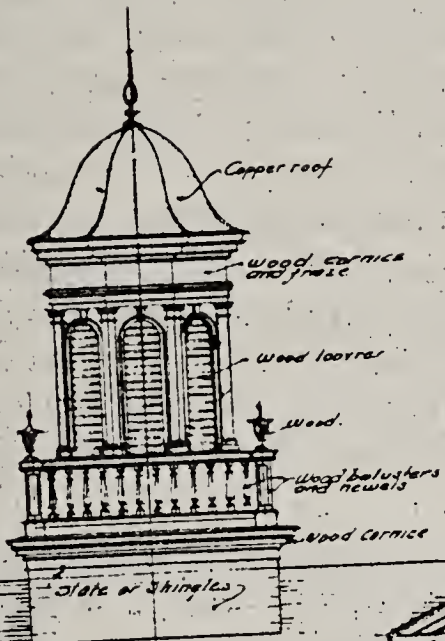 Copper roof
Wood cornice
and frieze
Wood louvres
Wood.
Wood balusters
and newels
Wood Cornice
Slate or Shingles